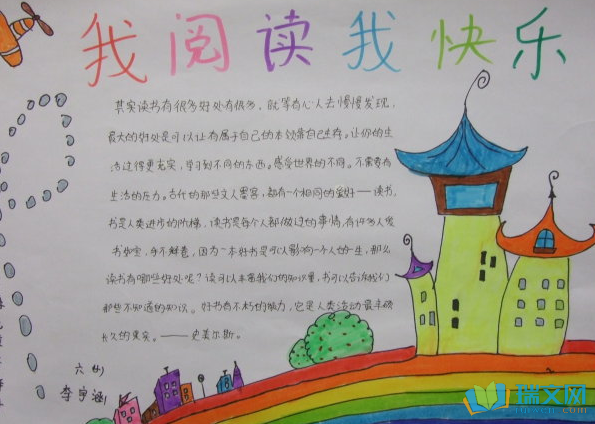 我阅读我快乐
其实读书有很多好处有很多，就等有心人去慢慢发现，
最大的好处是可以让有属于自己的本领靠自己生存。让你的生
活过得更充实，学习到不同的东西。感受世界的不同。不需要有
生活的压力。古代的那些文人墨客，都有一个相同的爱好——读书，
书是人类进步的阶梯，读书是每个人都做过的事情，有许多人爱
书如宝，手不释卷，因为一本好书是可以影响一个人的一生，那么
读书有哪些好处呢？读可以丰富我们的知识量，书可以告诉我们
那些不知道的知识。好书有不朽的能力，它是人类活动最丰硕
长久的果实。——史美尔斯。
六(4)
李宇涵
瑞文网